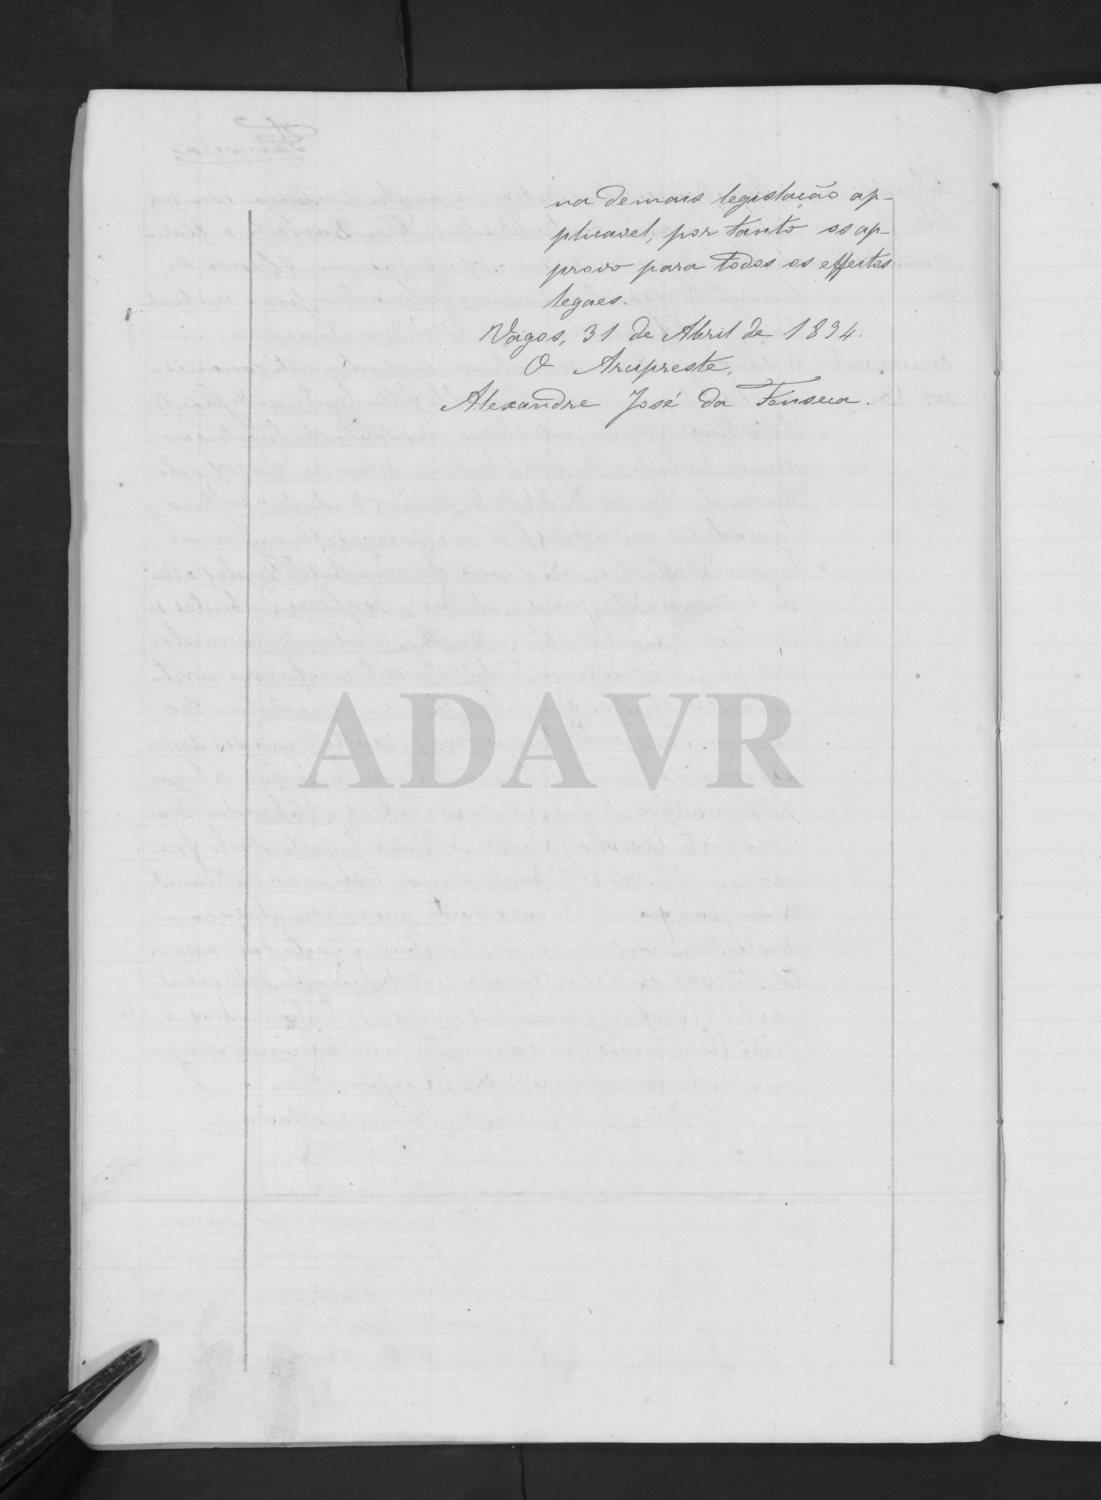 na demais legislação ap-
plicavel; por tanto os ap-
provo para todos os effeitos
legaes.
Vagos, 31 de Abril de 1894.
O Arcipreste,
Alexandre José da Fonseca.
ADAVR